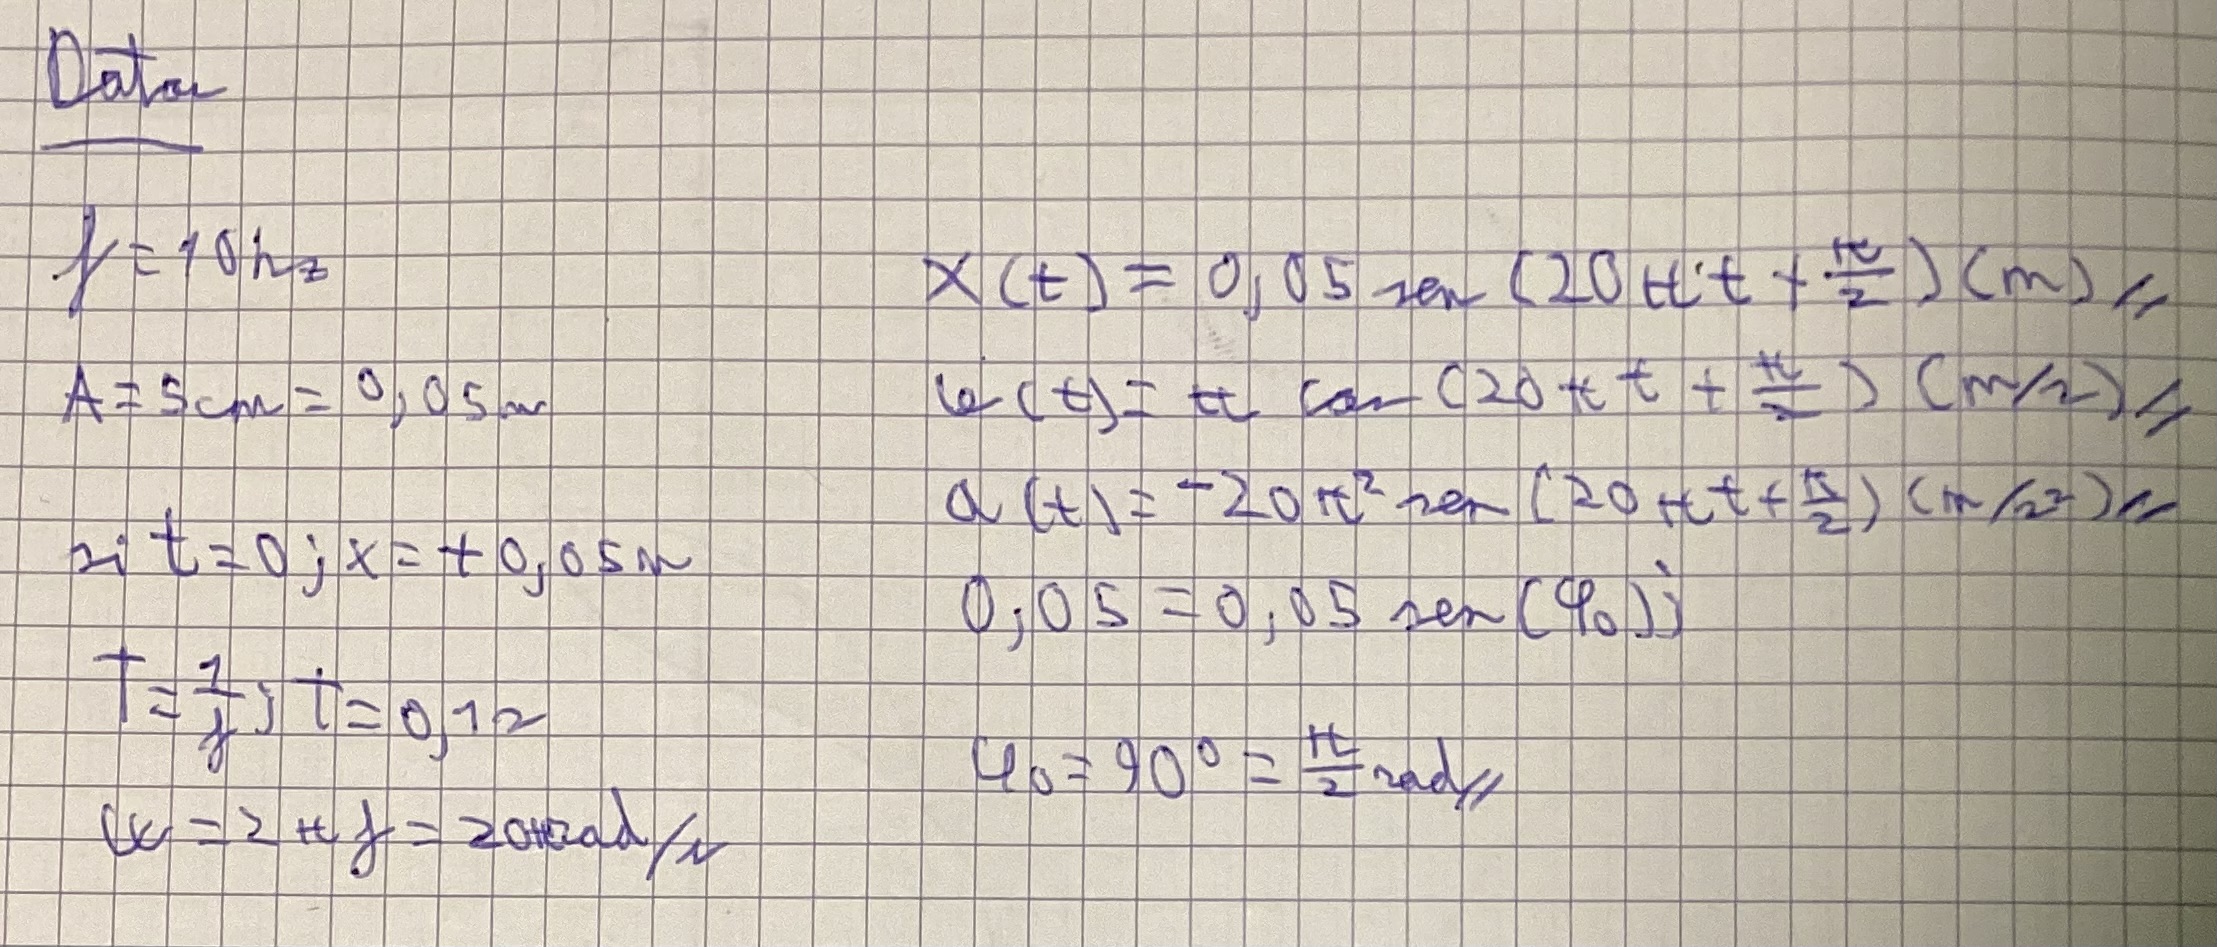 Datos
f = 10 hz
A = 5 cm = 0,05 m
si t = 0 ; x = + 0,05 m
T = 1/f ; T = 0,1 s
ω = 2 π f = 20π rad/s
x (t) = 0,05 sen (20 π · t + π/2) (m) //
v (t) = π cos (20 π t + π/2) (m/s) //
a (t) = -20 π² sen (20 π t + π/2) (m/s²) //
0,05 = 0,05 sen (φ₀) ;
φ₀ = 90° = π/2 rad //